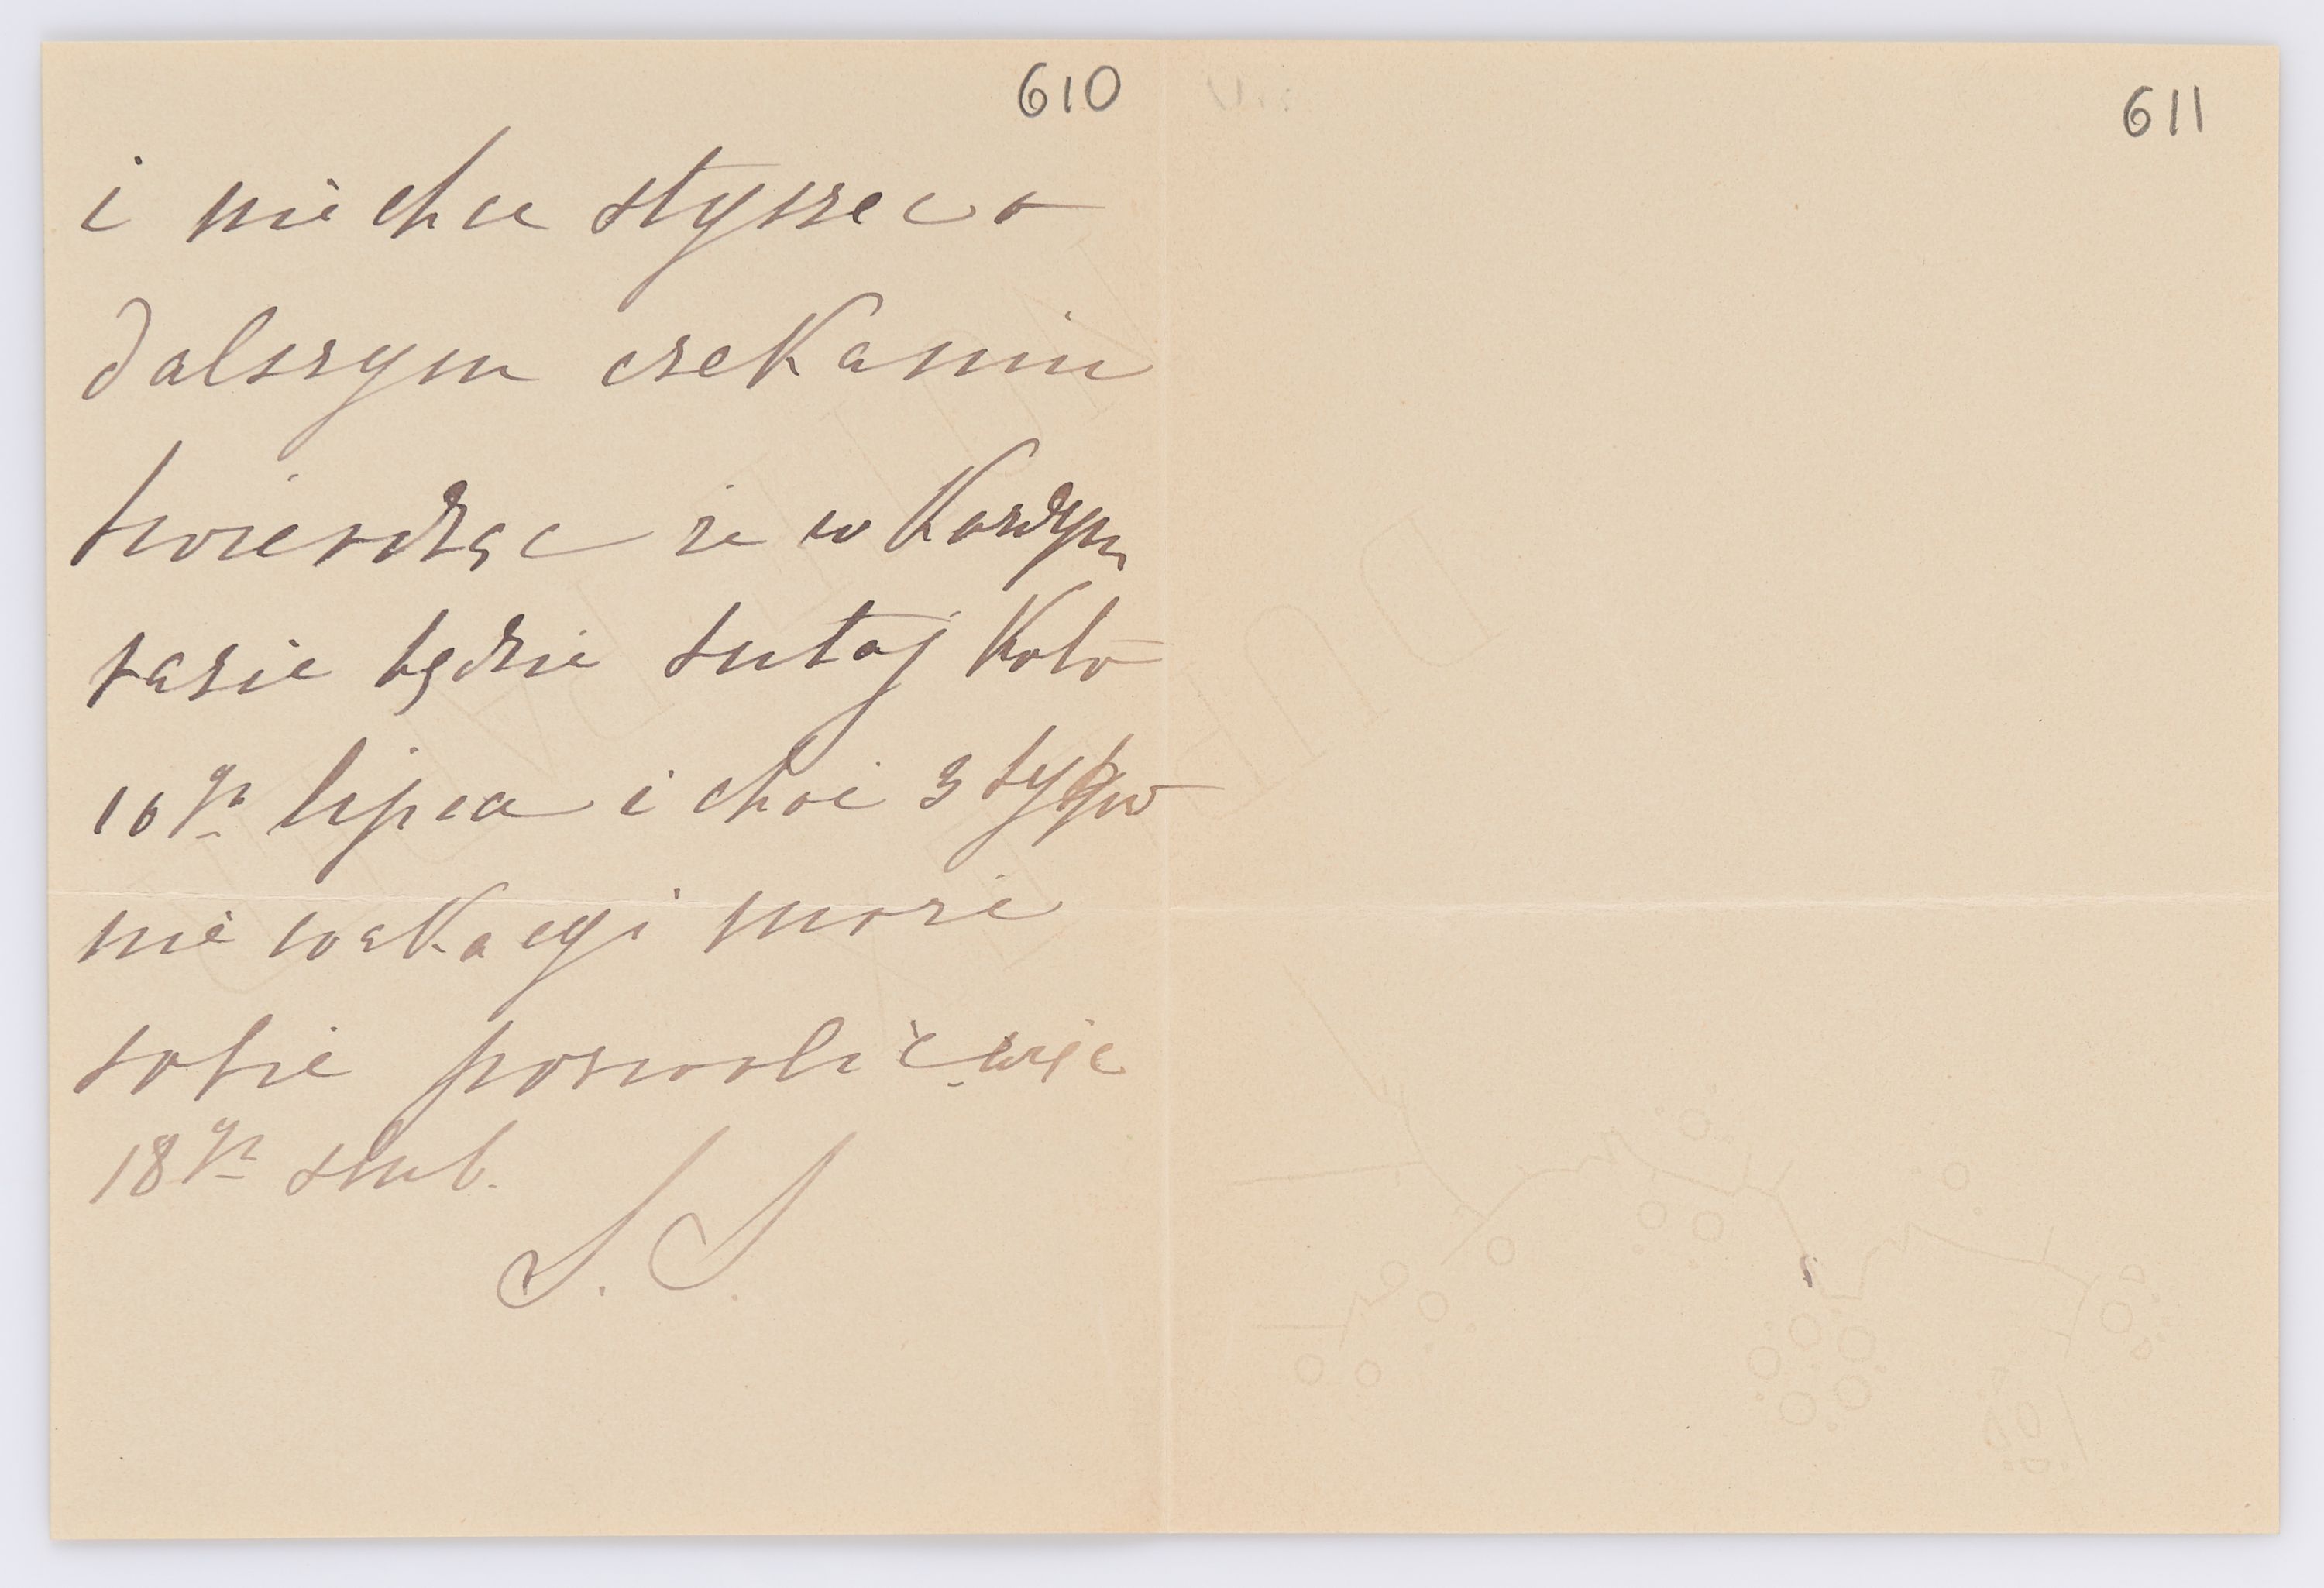 610
i nie chce słyszec o
dalszym czekaniu
twierdząc że w Każdym
razie będzie tutaj Koło
10go lipca i choć 3 tygw
nie wakacyi może
sobie pozwolić więc
18go slub.
S. S.
611